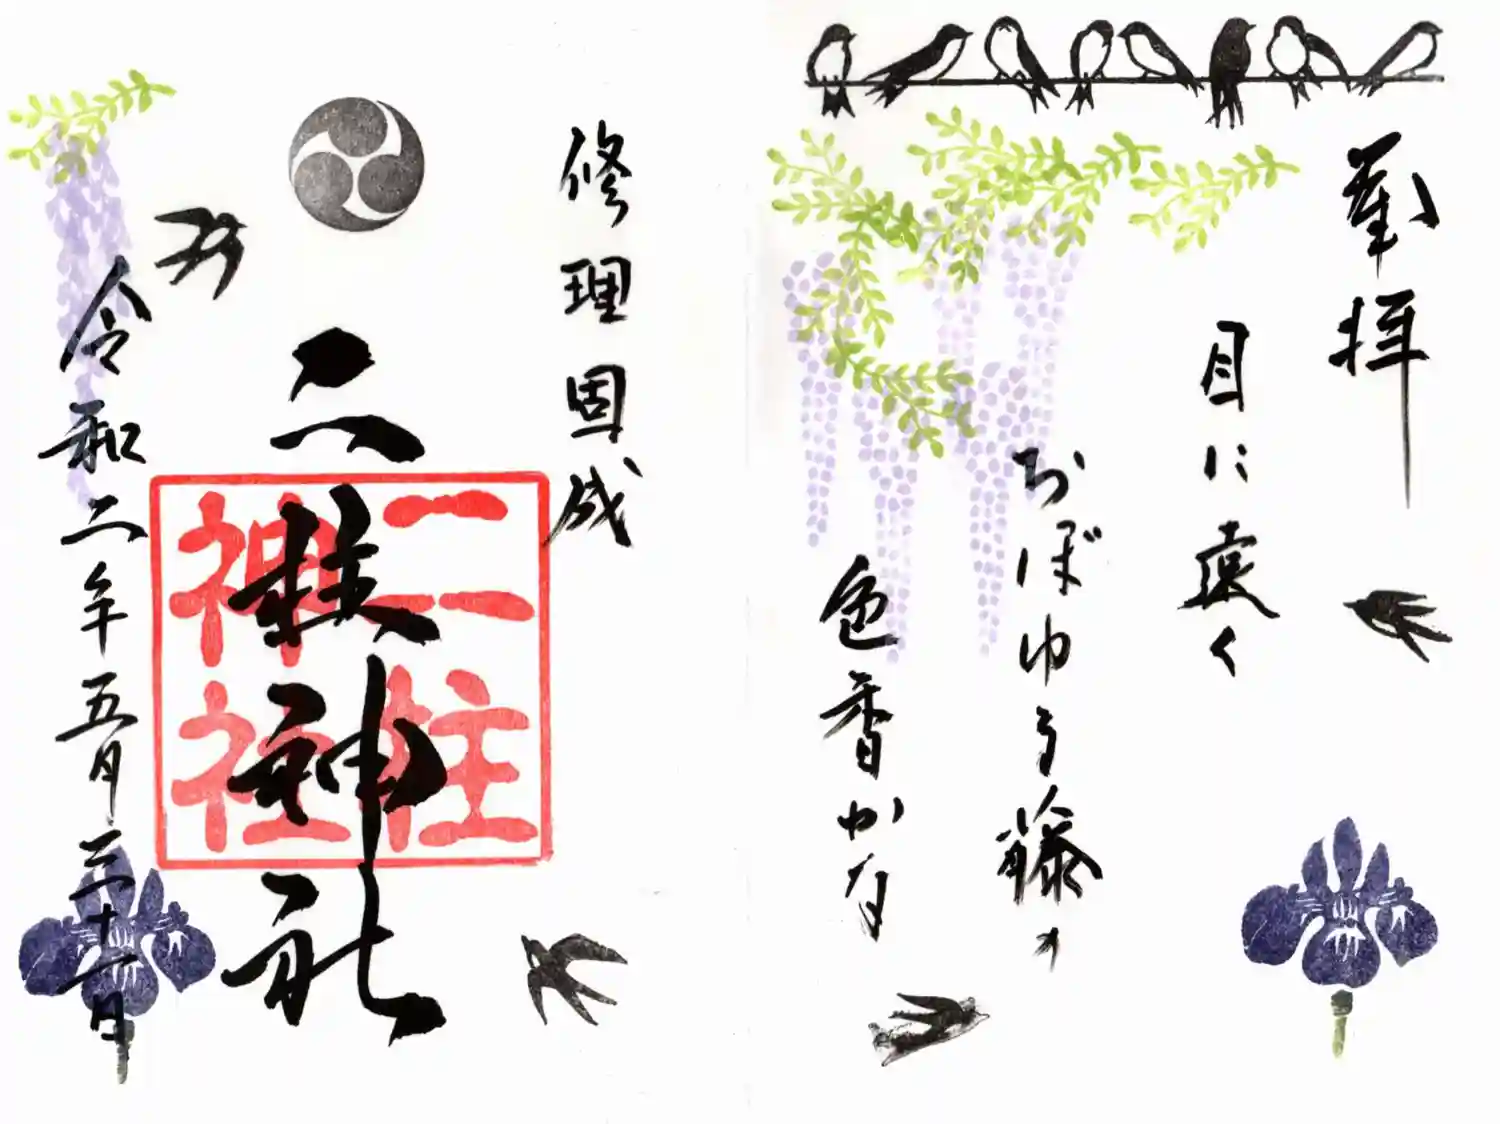 對拝
目に遠く
おぼゆる藤の
色香かな
修理固成
二柱神社
二柱
神社
令和二年五月三十一日